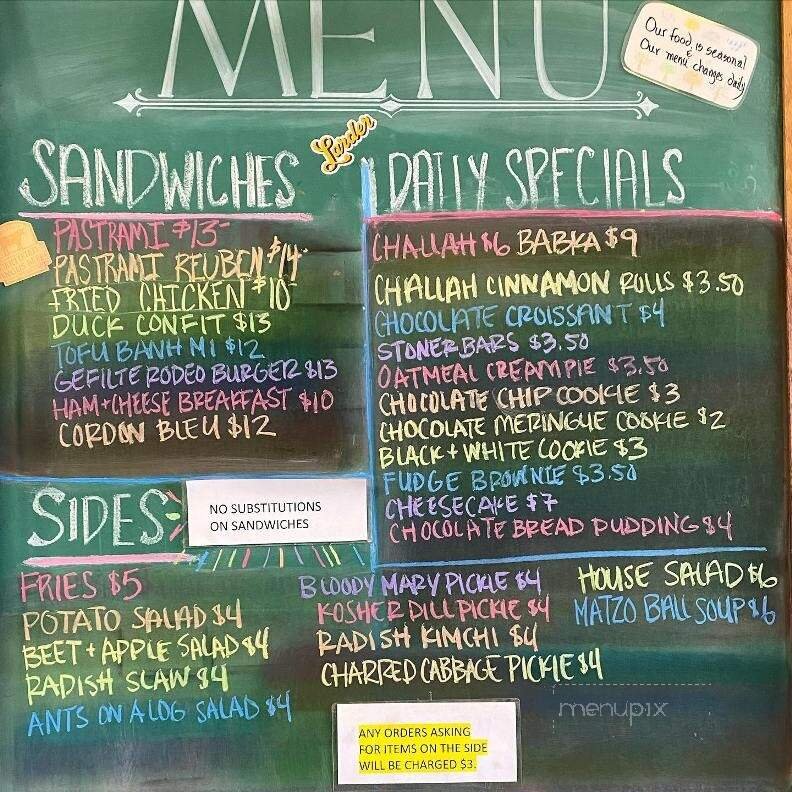 MENU
Our food is seasonal
&
Our menu changes daily
Larder
SANDWICHES
PASTRAMI $13
PASTRAMI REUBEN $14
FRIED CHICKEN $10
DUCK CONFIT $13
TOFU BANH MI $12
GEFILTE RODEO BURGER $13
HAM + CHEESE BREAKFAST $10
CORDON BLEU $12
DAILY SPECIALS
CHALLAH $6 BABKA $9
CHALLAH CINNAMON ROLLS $3.50
CHOCOLATE CROISSANT $4
STONER BARS $3.50
OATMEAL CREAM PIE $3.50
CHOCOLATE CHIP COOKIE $3
CHOCOLATE MERINGUE COOKIE $2
BLACK + WHITE COOKIE $3
FUDGE BROWNIE $3.50
CHEESECAKE $7
CHOCOLATE BREAD PUDDING $4
SIDES
NO SUBSTITUTIONS
ON SANDWICHES
FRIES $5
POTATO SALAD $4
BEET + APPLE SALAD $4
RADISH SLAW $4
ANTS ON A LOG SALAD $4
BLOODY MARY PICKLE $4
KOSHER DILL PICKLE $4
RADISH KIMCHI $4
CHARRED CABBAGE PICKLE $4
HOUSE SALAD $6
MATZO BALL SOUP $6
ANY ORDERS ASKING
FOR ITEMS ON THE SIDE
WILL BE CHARGED $3.
menupix